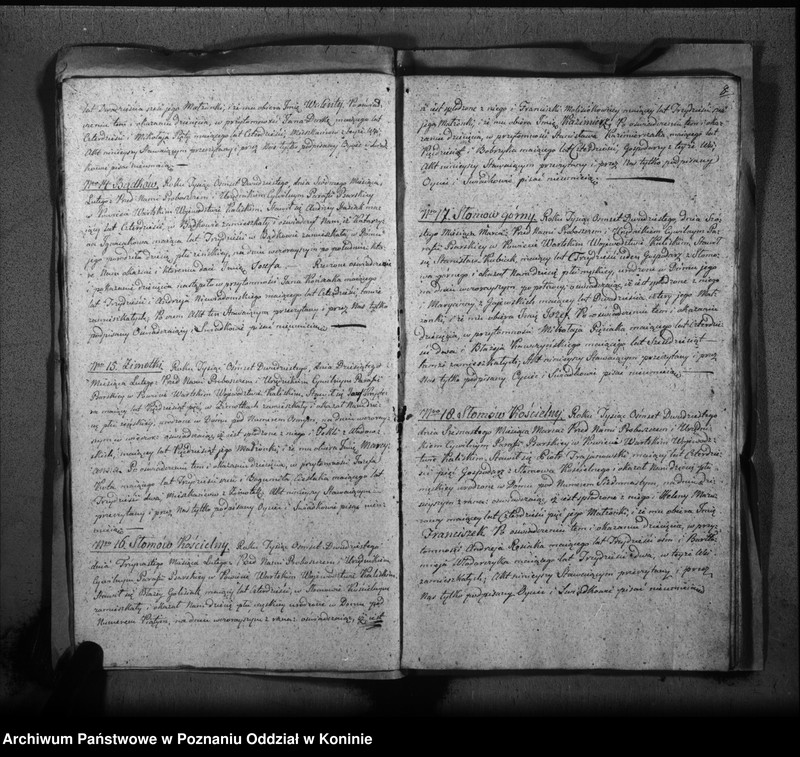 lat Dwadzieścia sześć jego Małżonki, i że mu obiera Imię Walenty. Po oświad-
czeniu tem i okazaniu dziecięcia, w przytomności Jana lat
Czterdzieści i Mikołaja mającego lat Czterdzieści
Akt niniejszy Stawającym przeczytany i przez Nas tylko podpisany Ojciec i Świad-
kowie pisać nieumieią.
Nro 14. Bądków. Roku Tysiąc Ośmset Dwudziestego, dnia Siódmego Miesiąca
Lutego. Przed Nami Proboszczem i Urzędnikiem Cywilnym Parafii Psarskiey
w Powiecie Wartskim Województwie Kaliskim, Stawił się Andrzey mai-
ący lat Czterdzieści w Bądkowie zamieszkały i oświadczył Nam, iż
mająca lat Trzydzieści w Bądkowie zamieszkała, w Domu
jego powiła dziecię płci żeńskiey, na dniu wczorayszym po południu, któ-
re Nam okazał i któremu dano Imię Józefa. Rzeczone oświadczenie
i pokazanie dziecięcia nastąpiło w przytomności Jana mającego
lat Trzydzieści i Andrzeja mającego lat Czterdzieści, tamże
zamieszkałych, Po czem Akt ten Stawającym przeczytany i przez Nas tylko
podpisany Oświadczaiący i Świadkowie pisać nieumieią.
Nro 15. Zimotki. Roku Tysiąc Ośmset Dwudziestego, dnia Dziesiątego
Miesiąca Lutego. Przed Nami Proboszczem i Urzędnikiem Cywilnym Parafii
Psarskiey w Powiecie Wartskim Województwie Kaliskim, Stawił się
mający lat Pięćdziesiąt pięć, w Zimotkach zamieszkały i okazał Nam dziec-
ię płci żeńskiey, urodzone w Domu pod Numerem Ósmym, na dniu wczoray-
szym w wieczor oświadczaiąc iż jest spłodzone z niego i Tekli z
mający lat Pięćdziesiąt jego Małżonki, i że mu obiera Imię Mary-
anna. Po oświadczeniu tem i okazaniu dziecięcia, w przytomności Józefa
mającego lat Trzydzieści ośm i Bogumiła Cieślaka mającego lat
Trzydzieści dwa, Mieszkańców z Zimotek, Akt niniejszy Stawającym
przeczytany i przez Nas tylko podpisany Ojciec i Świadkowie pisać nieu-
mieią.
Nro 16. Słomów Kościelny. Roku Tysiąc Ośmset Dwudziestego
dnia Trzynastego Miesiąca Lutego. Przed Nami Proboszczem i Urzędnikiem
Cywilnym Parafii Psarskiey w Powiecie Wartskim Województwie Kaliskim,
Stawił się Błażey mający lat Czterdzieści, w Słomowie Kościelnym
zamieszkały i okazał Nam dziecię płci męskiey urodzone w Domu pod
Numerem Piątym, na dniu wczorayszym z rana oświadczaiąc, iż
8
iż jest spłodzone z niego i Franciszki mający lat Trzydzieści
jego Małżonki, i że mu obiera Imię Kaźmierz. Po oświadczeniu tem i oka-
zaniu dziecięcia, w przytomności Stanisława Kaźmierczaka mającego lat
Pięćdziesiąt i Bobrzyka mającego lat Czterdzieści, Gospodarzy z teyże Wsi
Akt niniejszy Stawającym przeczytany i przez Nas tylko podpisany
Ojciec i Świadkowie pisać nieumieią.
Nro 17. Słomów Górny. Roku Tysiąc Ośmset Dwudziestego dnia
Miesiąca Marca. Przed Nami Proboszczem i Urzędnikiem Cywilnym Pa-
rafii Psarskiey w Powiecie Wartskim Województwie Kaliskim, Stawił
się Stanisław Kubiak, mający lat Czterdzieści jeden Gospodarz z Słomo-
wa górnego i okazał Nam dziecię płci męskiey, urodzone w Domu jego
na dniu wczorayszym po północy, oświadczaiąc, iż jest spłodzone z niego
i Maryanny z mający lat Dwadzieścia cztery jego Mał-
żonki, i że mu obiera Imię Józef. Po oświadczeniu tem i okazaniu
dziecięcia, w przytomności Mikołaja mającego lat Czterdzie-
ści dwa i Błażeja mającego lat Sześćdziesiąt
tamże zamieszkałych, Akt niniejszy Stawającym przeczytany i przez
Nas tylko podpisany Ojciec i Świadkowie pisać nieumieią.
Nro 18. Słomów Kościelny. Roku Tysiąc Ośmset Dwudziestego
dnia Miesiąca Marca Przed Nami Proboszczem i Urzędni-
kiem Cywilnym Parafii Psarskiey w Powiecie Wartskim Wojewódz-
twie Kaliskim, Stawił się Piotr Trojanowski mający lat Czterdzie-
ści pięć Gospodarz z Słomowa Kościelnego i okazał Nam dziecię płci
męskiey urodzone w Domu pod Numerem Siedmnastym, na dniu dzi-
sieyszym z rana oświadczaiąc, iż jest spłodzone z niego i Heleny
mający lat Czterdzieści pięć jego Małżonki, i że mu obiera Imię
Franciszek. Po oświadczeniu tem i okazaniu dziecięcia, w przy-
tomności Andrzeja mającego lat Trzydzieści ośm i Bartło-
mieja Włodarczyka mającego lat Trzydzieści dwa, w teyże Wsi
zamieszkałych, Akt niniejszy Stawającym przeczytany i przez
Nas tylko podpisany Ojciec i Świadkowie pisać nieumieią.
Archiwum Państwowe w Poznaniu Oddział w Koninie